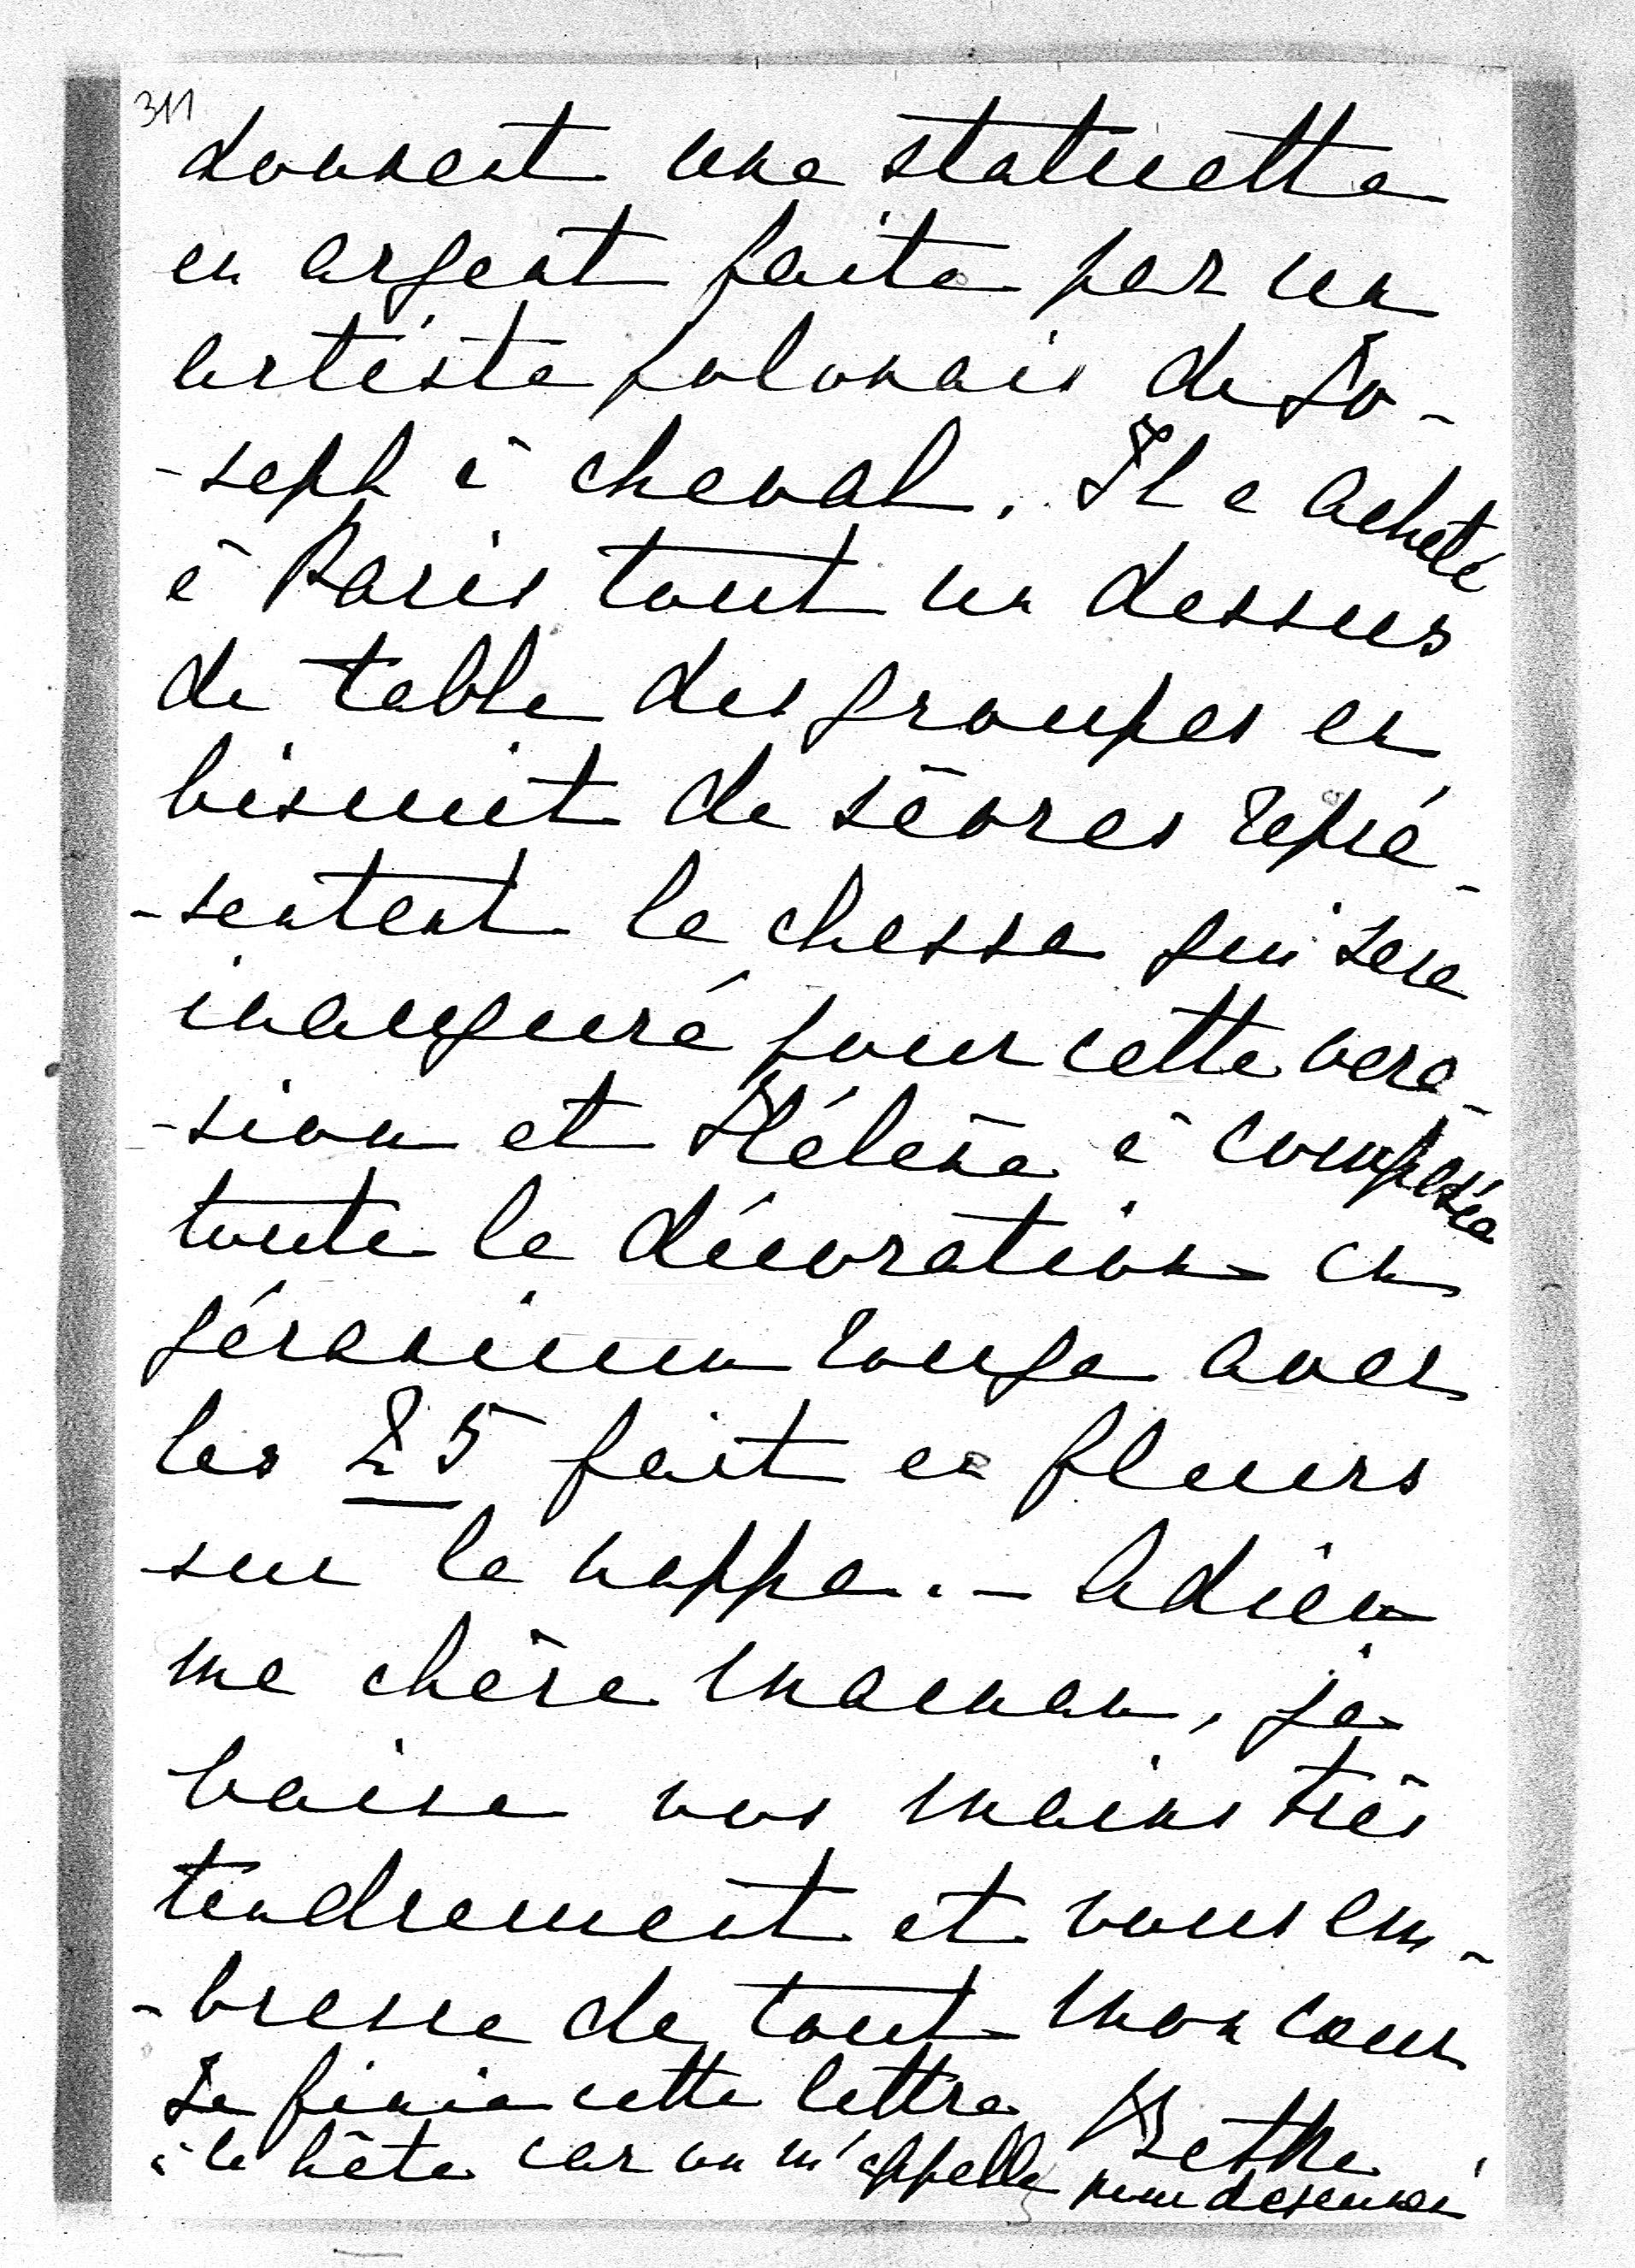 311
donnent une statuette
en argent faite par un
artiste polonais de Jo-
-seph à cheval. Il a acheté
à Paris tout un dessus
de table des groupes en
biscuit de sèvres repré-
-sentant la chasse qui sera
inauguré pour cette occa-
-sion et Hélène a composée
toute la décoration en
géranium rouge avec
les 25 fait en fleurs
sur la nappe. - Adieu
ma chère maman, je
baise vos mains très
tendrement et vous em-
-brasse de tout mon cœur
Je finis cette lettre Bethe
à la hâte car on m'appelle pour dejeuner